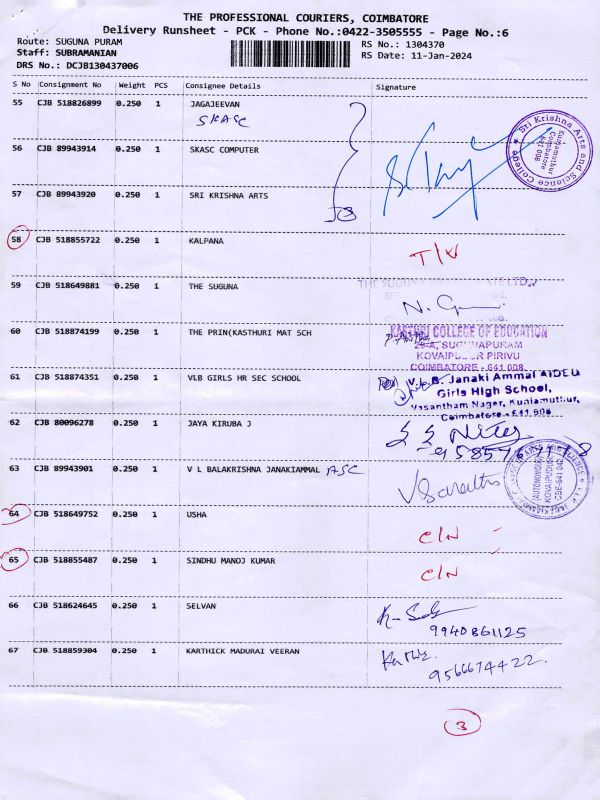 THE PROFESSIONAL COURIERS, COIMBATORE
Delivery Runsheet - PCK - Phone No.:0422-3505555 - Page No.:6
Route: SUGUNA PURAM
Staff: SUBRAMANIAN
DRS No.: DCJB130437006
RS No.: 1304370
RS Date: 11-Jan-2024
S No Consignment No Weight PCS Consignee Details Signature
55 CJB 518826899 0.250 1 JAGAJEEVAN
SKASC
56 CJB 89943914 0.250 1 SKASC COMPUTER
Sri Krishna Arts and Science College
Kuniamuthur
Coimbatore
641 008
57 CJB 89943920 0.250 1 SRI KRISHNA ARTS
58 CJB 518855722 0.250 1 KALPANA
59 CJB 518649881 0.250 1 THE SUGUNA
THE SUGUNA
60 CJB 518874199 0.250 1 THE PRIN(KASTHURI MAT SCH
KASTHURI COLLEGE OF EDUCATION
29-A, SUGUNAPURAM
KOVAIPUDUR PIRIVU
COIMBATORE - 641 008.
61 CJB 518874351 0.250 1 VLB GIRLS HR SEC SCHOOL
V.L.B. Janaki Ammal AIDED
Girls High School,
Vasantham Nagar, Kuniamuthur,
Coimbatore - 641 008
62 CJB 80096278 0.250 1 JAYA KIRUBA J
63 CJB 89943901 0.250 1 V L BALAKRISHNA JANAKIAMMAL ASC
(AUTONOMOUS)
KOVAIPUDUR
CBE-641 042
64 CJB 518649752 0.250 1 USHA
C/N
65 CJB 518855487 0.250 1 SINDHU MANOJ KUMAR
C/N
66 CJB 518624645 0.250 1 SELVAN
9940861125
67 CJB 518859304 0.250 1 KARTHICK MADURAI VEERAN
9566674422.
3